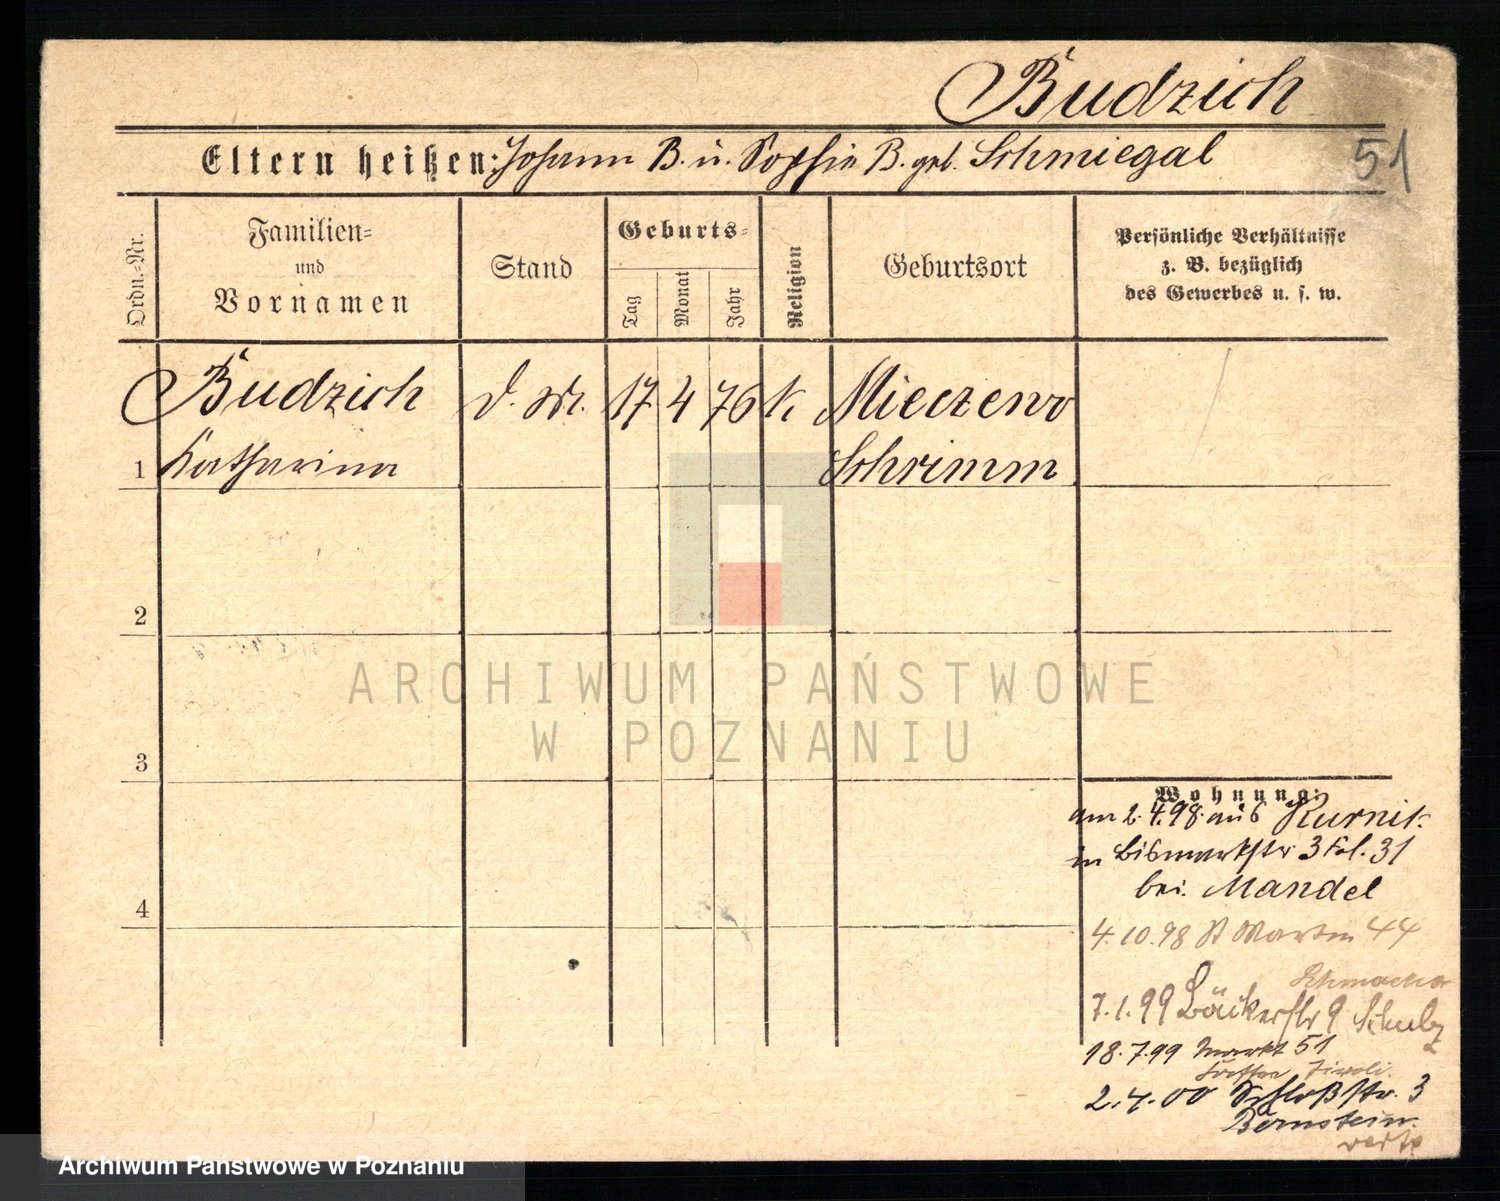 Budzich
Eltern heißen: Johann B. u. Sophie B. geb. Schmiegal
51
Ordn.-Nr.
Familien-
und
Vornamen
Stand
Geburts-
Tag
Monat
Jahr
Religion
Geburtsort
Persönliche Verhältnisse
z. B. bezüglich
des Gewerbes u. s. w.
Budzich
d. M. 17 4 76 k. Mieczewo
1 Katharina
Schrimm
2
3
4
ARCHIWUM PAŃSTWOWE
W POZNANIU
Wohnung:
am 2.4.98. aus Kurnik
in Bismarkstr 3 Fol. 31
bei Mandel
4.10.98 St Martin 44
7.1.99 Bäckerstr 9 Schulz
18.7.99 Markt 51
2.4.00 Schloßstr. 3
Bernstein
Archiwum Państwowe w Poznaniu